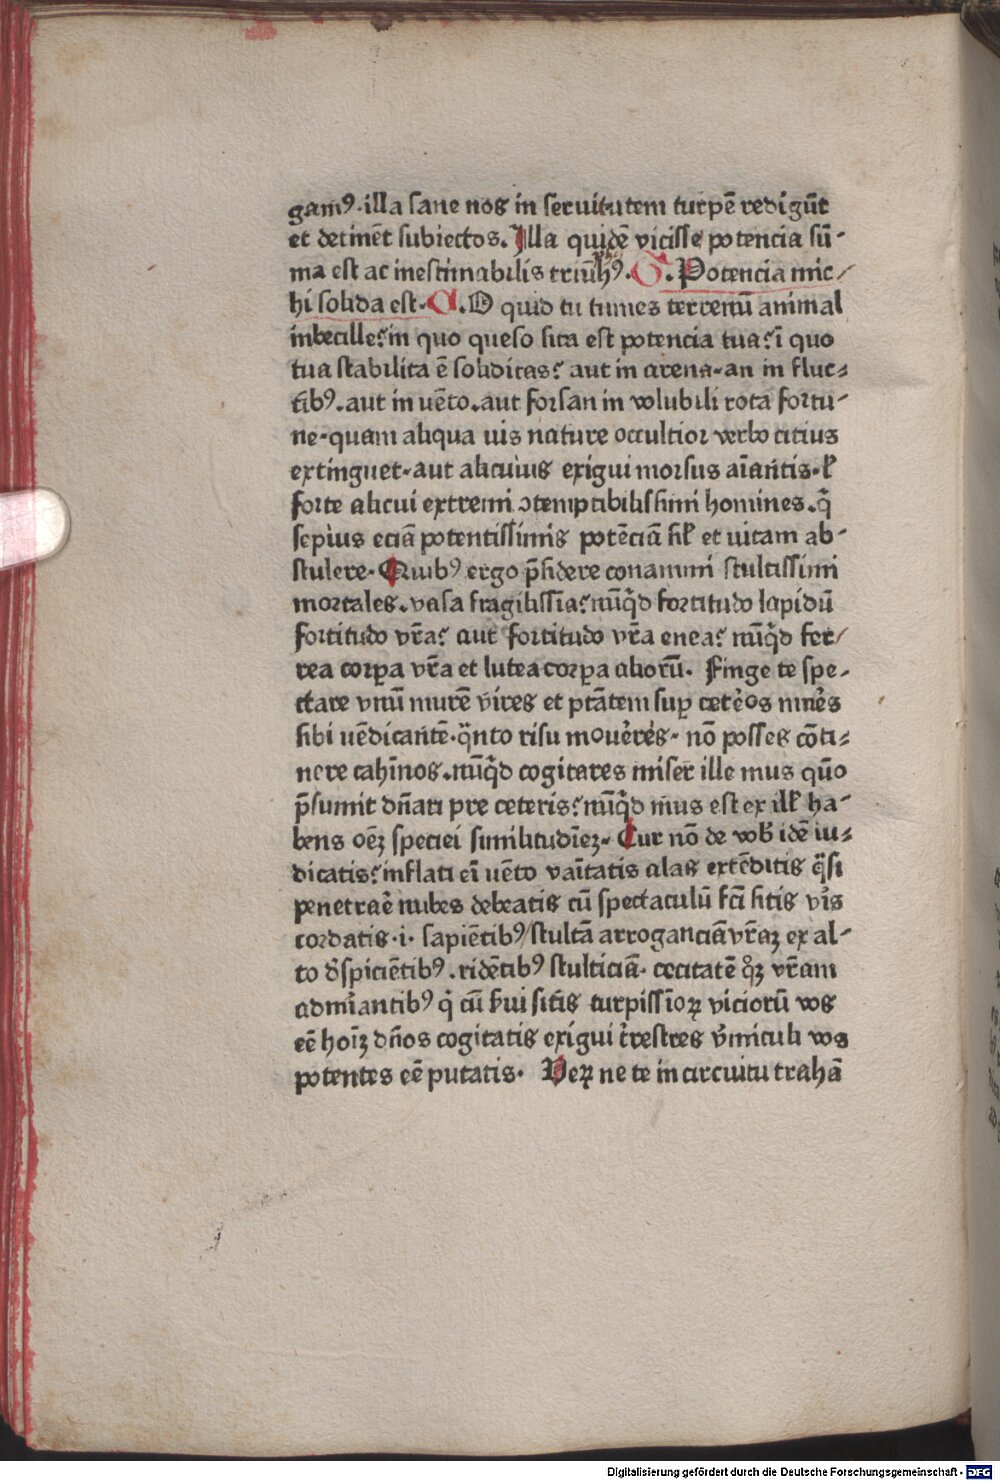 gamꝰ·illa sane nos in seruitutem turpē redigūt
et detinēt subiectos.Illa quidē vicisse potencia sū-
ma est ac inestimabilis triūhꝰ.G.Potencia mic/
hi solida est·C.O quid tu tumes terrenū animal
inbecille?in quo queso sita est potencia tua?ī quo
tua stabilita ē soliditas? aut in arena·an in fluc-
tibꝰ.aut in uēto.aut forsan in volubili rota fortu-
ne·quam aliqua uis nature occultior verbo citius
extinguet·aut alicuius exigui morsus aīantis·ł
forte alicui extremi ɔtemptibilissimi homines.q̄
sepius eciā potentissimis potēciā sił et uitam ab-
stulere·Quibꝰ ergo p̄sidere conamini stultissimi
mortales.vasa fragilissīa?nūqd̄ fortitudo lapidū
fortitudo vr̄a? aut fortitudo vr̄a enea? nūqd̄ fer/
rea corpa vr̄a et lutea corpa aliorū. Finge te spe-
ctare vnū murē vires et ptātem sup ceteros mures
sibi uēdicantē·qūto risu moueres· nō posses cōti-
nere cahinos.nūqd̄ cogitares miser ille mus quō
p̄sumit dn̄ari pre ceteris?nūqd̄ mus est ex illł ha-
bens oēꝫ speciei similitudīeꝫ· Cur nō de vobꝭ idē iu-
dicatis?inflati eī uēto vaītatis alas extēditis q̄si
penetrare nubes debeatis cū spectaculū fcī sitis viris
cordatis·i· sapiētibꝰ/stultā arroganciā vr̄aꝫ ex al-
to dꝭspiciētibꝰ.ridētibꝰ stulticiā· cecitatē qꝫ vr̄am
admirantibꝰ q̄ cū serui sitis turpissīoꝝ viciorū vos
eē hoīꝫ dn̄os cogitatis exigui trestres vmiculi vos
potentes eē putatis· Veꝝ ne te in circuitu trahā
Digitalisierung gefördert durch die Deutsche Forschungsgemeinschaft - DFG